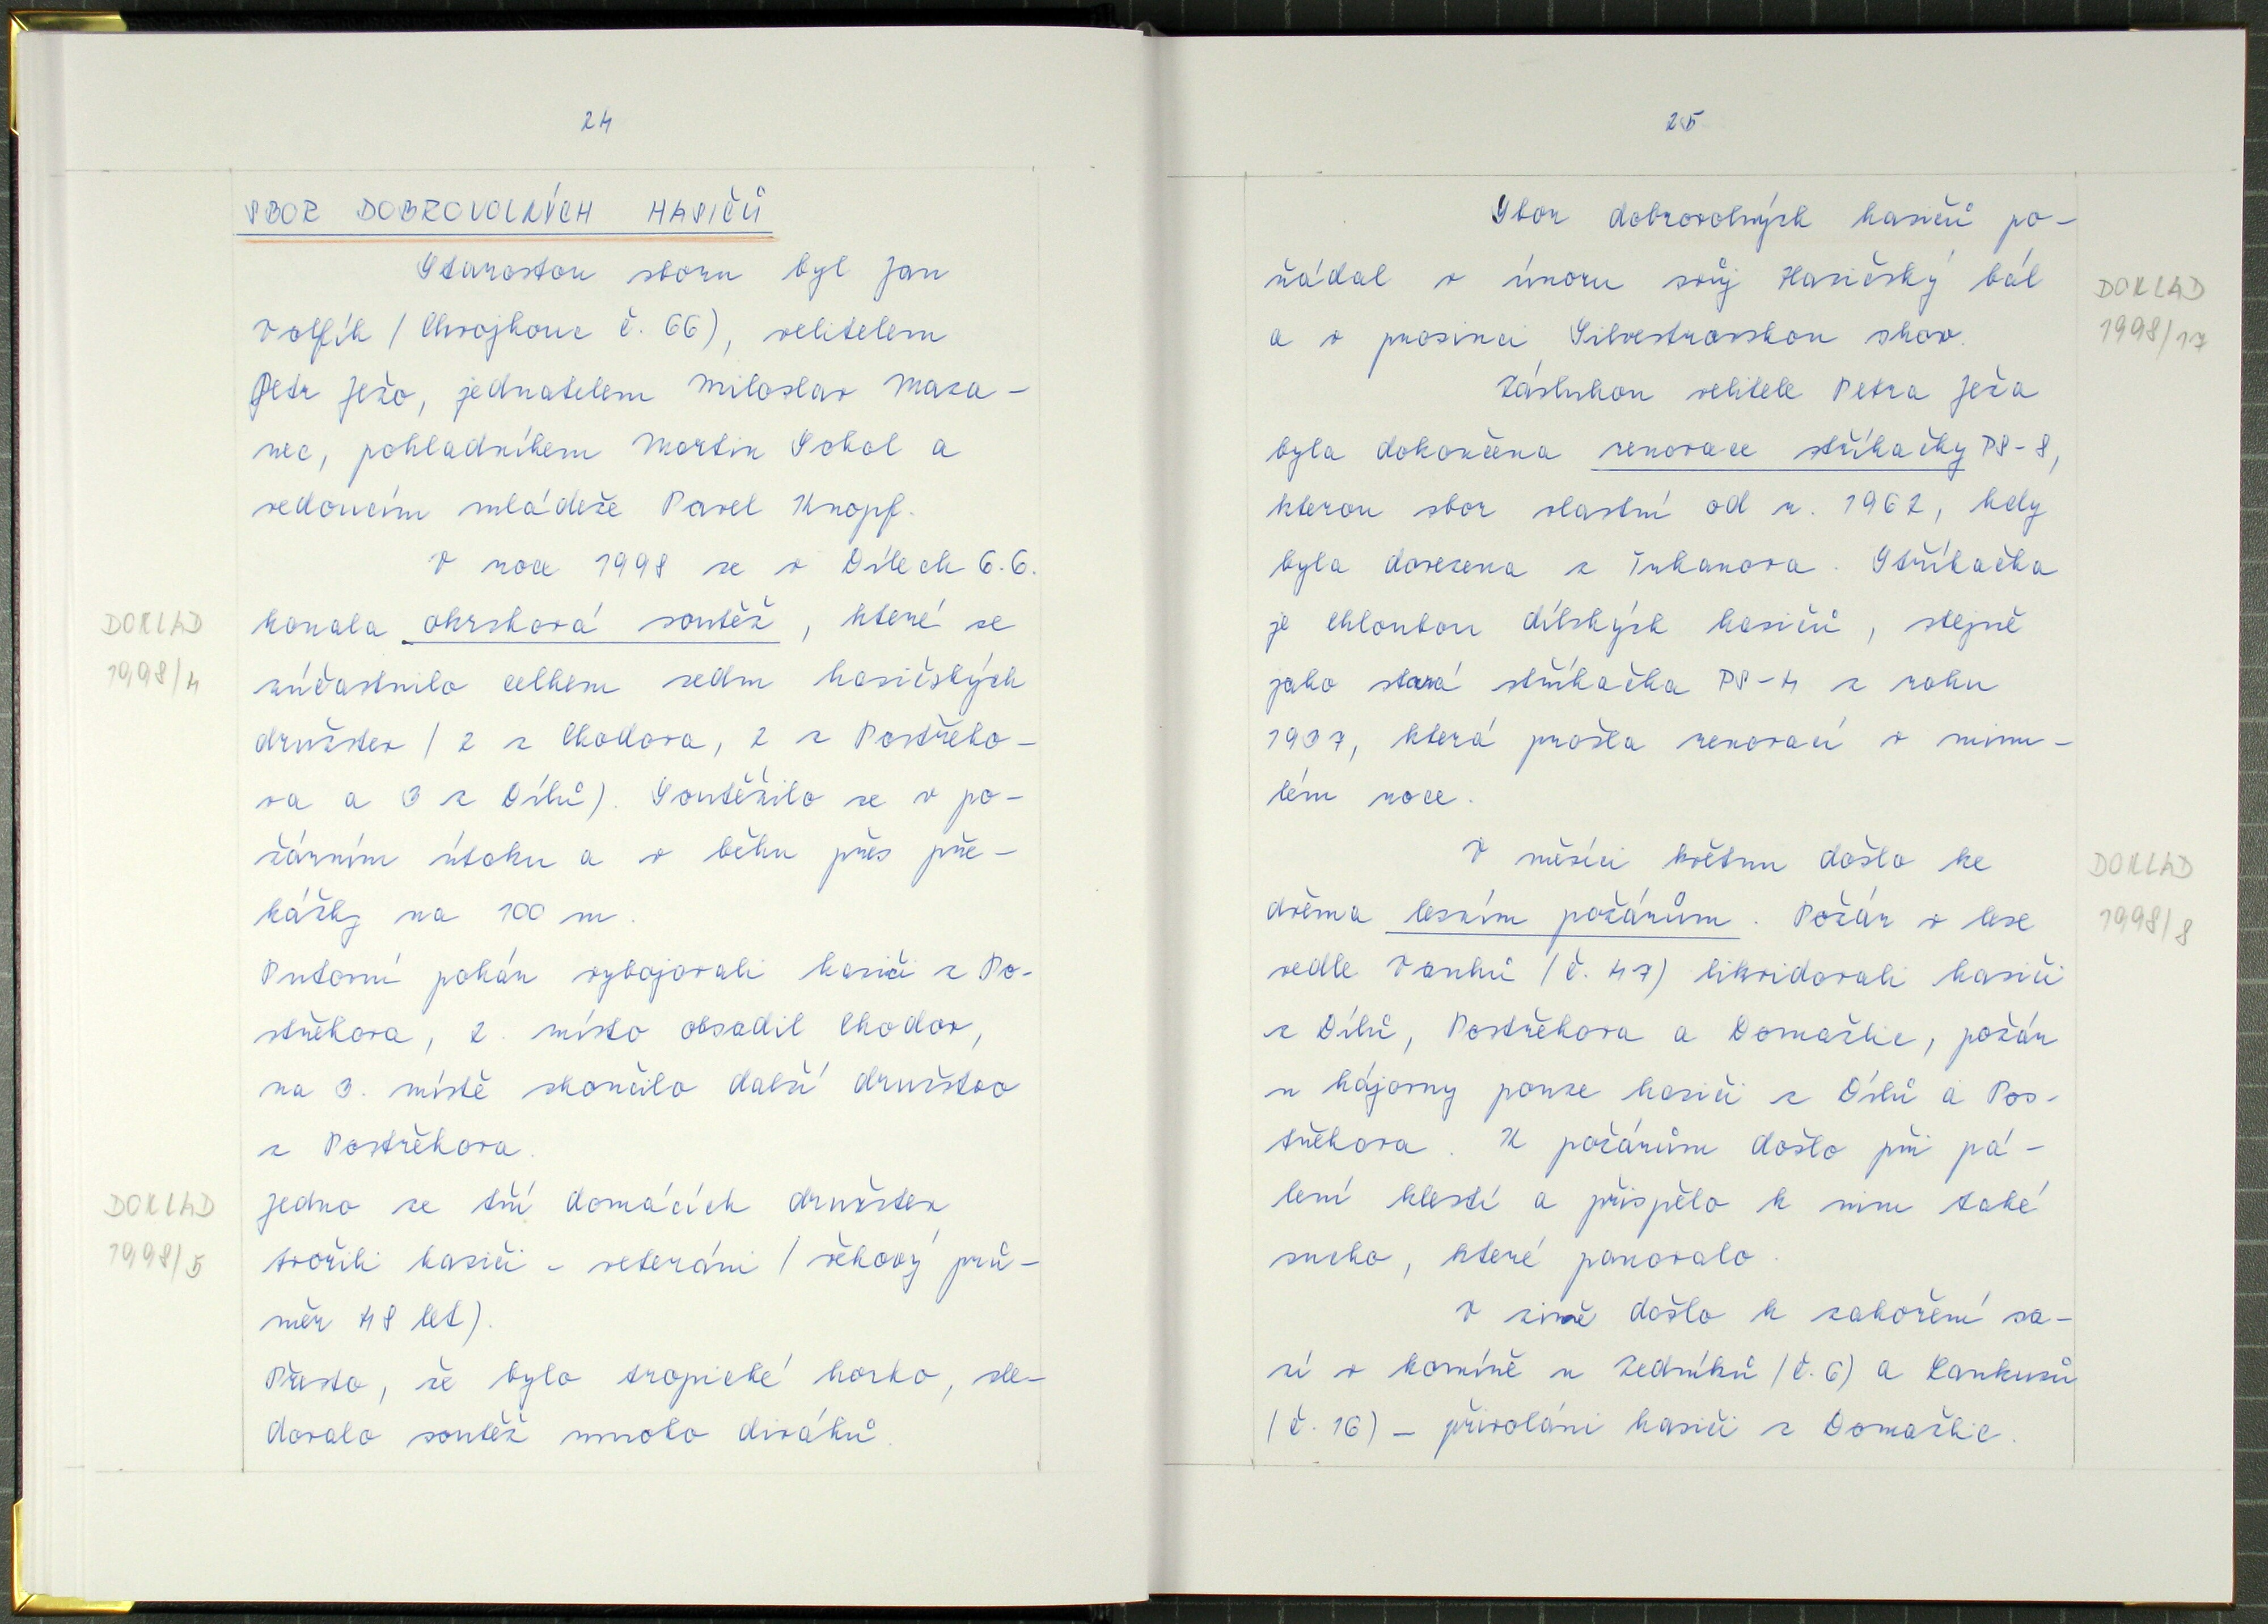 24
SBOR DOBROVOLNÝCH HASIČŮ
Starostou sboru byl Jan
Volfík (Chvojkouc č. 66), velitelem
Petr Ježo, jednatelem Miloslav Maza-
nec, pokladníkem Martin Sokol a
vedoucím mládeže Pavel Knopf.
V roce 1998 se v Dílech 6.6.
DOKLAD
1998/4
konala okrsková soutěž, které se
zúčastnilo celkem sedm hasičských
družstev (2 z Chodova, 2 z Postřeko-
va a 3 z Dílů). Soutěžilo se v po-
žárním útoku a v běhu přes pře-
kážky na 100 m.
Putovní pohár vybojovali hasiči z Po-
střekova, 2. místo obsadil Chodov,
na 3. místě skončilo další družstvo
z Postřekova.
DOKLAD
1998/5
Jedno ze tří domácích družstev
tvořili hasiči - veteráni (věkový prů-
měr 48 let).
Přesto, že bylo tropické horko, sle-
dovalo soutěž mnoho diváků.
25
Sbor dobrovolných hasičů po-
řádal v únoru svůj Hasičský bál
a v prosinci Silvestrovskou show.
DOKLAD
1998/17
Zásluhou velitele Petra Ježa
byla dokončena renovace stříkačky PS-8,
kterou sbor vlastní od r. 1962, kdy
byla dovezena z Tuhanova. Stříkačka
je chloubou dílských hasičů, stejně
jako stará stříkačka PS-4 z roku
1937, která prošla renovací v minu-
lém roce.
V měsíci květnu došlo ke
dvěma lesním požárům. Požár v lese
DOKLAD
1998/8
vedle Vaňků (č. 47) likvidovali hasiči
z Dílů, Postřekova a Domažlic, požár
u hájovny pouze hasiči z Dílů a Pos-
třekova. K požárům došlo při pá-
lení klestí a přispělo k nim také
sucho, které panovalo.
V zimě došlo k zahoření sa-
zí v komíně u Zedníků (č. 6) a Kankusů
(č. 16) - přivoláni hasiči z Domažlic.